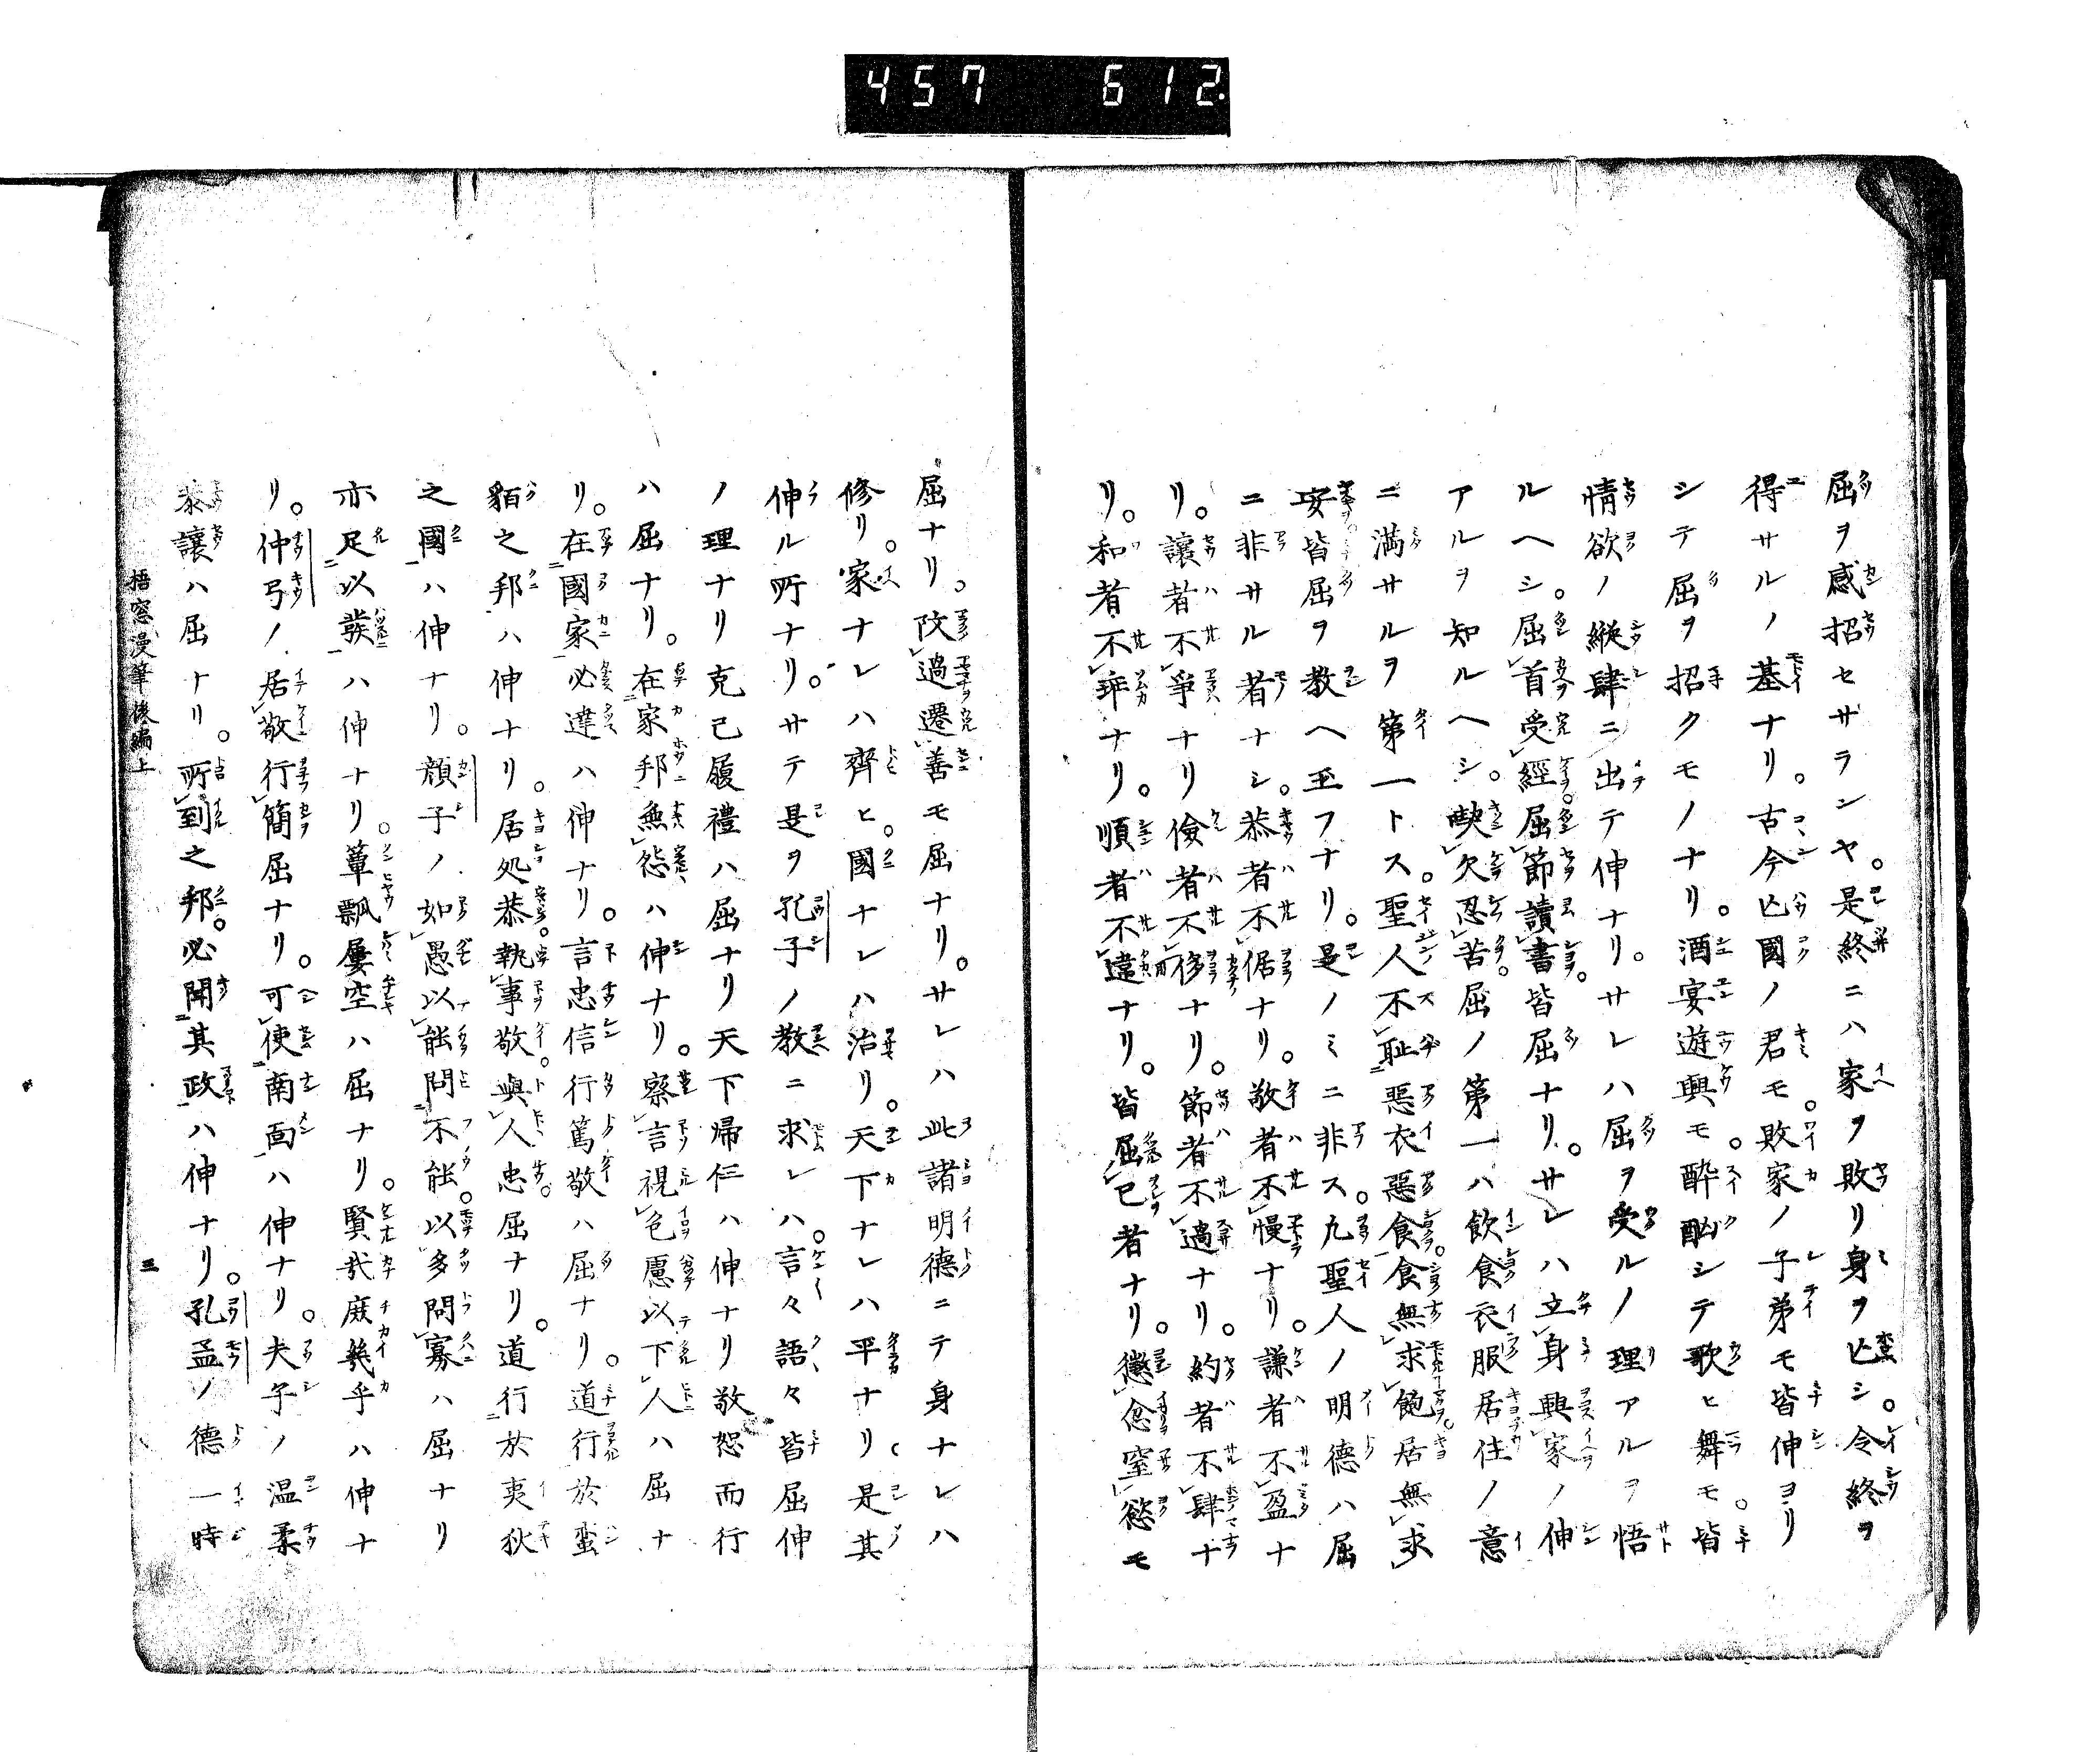 457 612
屈ヲ感招セザランヤ。是終ニハ家ヲ敗リ身ヲ亾シ。令終ヲ
得サルノ基ナリ。古今亾國ノ君モ。敗家ノ子弟モ皆伸ヨリ
シテ屈ヲ招クモノナリ。酒宴遊興モ。酔酗シテ歌ヒ舞モ。皆
情欲ノ縦肆ニ出テ伸ナリ。サレハ屈ヲ受ルノ理アルヲ悟
ルヘシ。屈首受經。屈節讀書。皆屈ナリ。サレハ立身興家ノ伸
アルヲ知ルヘシ。缺欠忍苦。屈ノ第一ハ飲食衣服居住ノ意
ニ満サルヲ第一トス。聖人不恥惡衣惡食。食無求飽。居無求
安。皆屈ヲ教ヘ玉フナリ。是ノミニ非ス。凢聖人ノ明德ハ屈
ニ非サル者ナシ。恭者不倨ナリ。敬者不慢ナリ。謙者不盈ナ
リ。讓者不爭ナリ儉者不侈ナリ。節者不過ナリ。約者不肆ナ
リ。和者不乖ナリ。順者不違ナリ。皆屈已者ナリ。懲忿窒慾モ
屈ナリ。改過遷善モ屈ナリ。サレハ此諸明德ニテ身ナレハ
修リ。家ナレハ齊ヒ。國ナレハ治リ。天下ナレハ平ナリ是其
伸ル所ナリ。サテ是ヲ孔子ノ教ニ求レハ。言々語々皆屈伸
ノ理ナリ克己履禮ハ屈ナリ天下帰仁ハ伸ナリ敬恕而行
ハ屈ナリ。在家邦無怨ハ伸ナリ。察言視色慮以下人ハ屈ナ
リ。在國家必達ハ伸ナリ。言忠信行篤敬ハ屈ナリ。道行於蛮
貊之邦ハ伸ナリ。居処恭。執事敬。與人忠。屈ナリ。道行於夷狄
之國ハ伸ナリ。顔子ノ如愚以能問不能。以多問寡ハ屈ナリ
亦足以發ハ伸ナリ。簞瓢屢空ハ屈ナリ。賢哉庶幾乎ハ伸ナ
リ。仲弓ノ居敬行簡屈ナリ。可使南面ハ伸ナリ。夫子ノ温柔
恭讓ハ屈ナリ。所到之邦。必聞其政ハ伸ナリ。孔孟ノ德一時
梧窓漫筆後編上
三